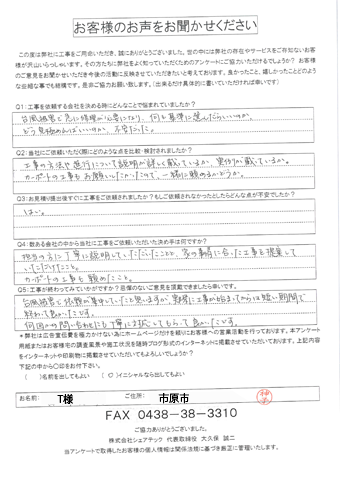 お客様のお声をお聞かせください
この度は弊社に工事をご用命いただき、誠にありがとうございました。世の中には弊社の存在やサービスをご存知ないお客
様が沢山いらっしゃいます。その方たちに弊社をよく知っていただくためのアンケートにご協力いただけるでしょうか？お客様
のご意見をお聞かせいただき今後の活動に反映させていただきたいと考えております。良かったこと、嬉しかったことどのよう
な些細な事でも結構です。是非ご協力お願い致します。（出来るだけ具体的に書いていただければ幸いです）
Q1：工事を依頼する会社を決める時にどんなことで悩まれていましたか？
台風被害で急に修理が必要になり、何を基準に選んだらいいのか、
どう見極めればいいのか、不安だった。
Q2：当社にご依頼いただく際にどのような点を比較・検討されましたか？
工事の方法や進行について説明が詳しく載っているか、実例が載っているか。
カーポートの工事もお願いしたかったので、一緒に頼めるかどうか。
Q3：お見積り提出後すぐに工事を依頼されましたか？もしご依頼されなかったとしたらどんな点が不安でしたか？
はい。
Q4：数ある会社の中から当社に工事をご依頼いただいた決め手は何ですか？
担当の方に丁寧に説明していただいたことと、家の事情に合った工事を提案して
いただけたこと。
カーポートの工事も頼めたこと。
Q5：工事が終わってみていかがですか？忌憚のないご意見を頂戴できましたら幸いです。
台風被害で依頼が集中していたと思いますが、実際に工事が始まってからは短い期間で
終わって良かったです。
何回かの問い合わせにも丁寧に対応してもらって良かったです。
＊弊社は広告宣伝費を極力かけない為にホームページだけを頼りにお客様への営業活動を行っております。本アンケート
用紙またはお客様宅の調査風景や施工状況を随時ブログ形式のインターネットにて掲載させていただいております。上記内容
をインターネットや印刷物に掲載させていただいてもよろしいでしょうか？
下記の中から〇印をお付け下さい。
（　）名前を出してもよい　（〇）イニシャルなら出してもよい
お名前：　T様　ご住所：　市原市
FAX 0438-38-3310
ご協力ありがとうございました。
株式会社シェアテック　代表取締役　大久保　誠二
当アンケートで取得したお客様の個人情報は関係法規に基づき厳正に管理いたします。